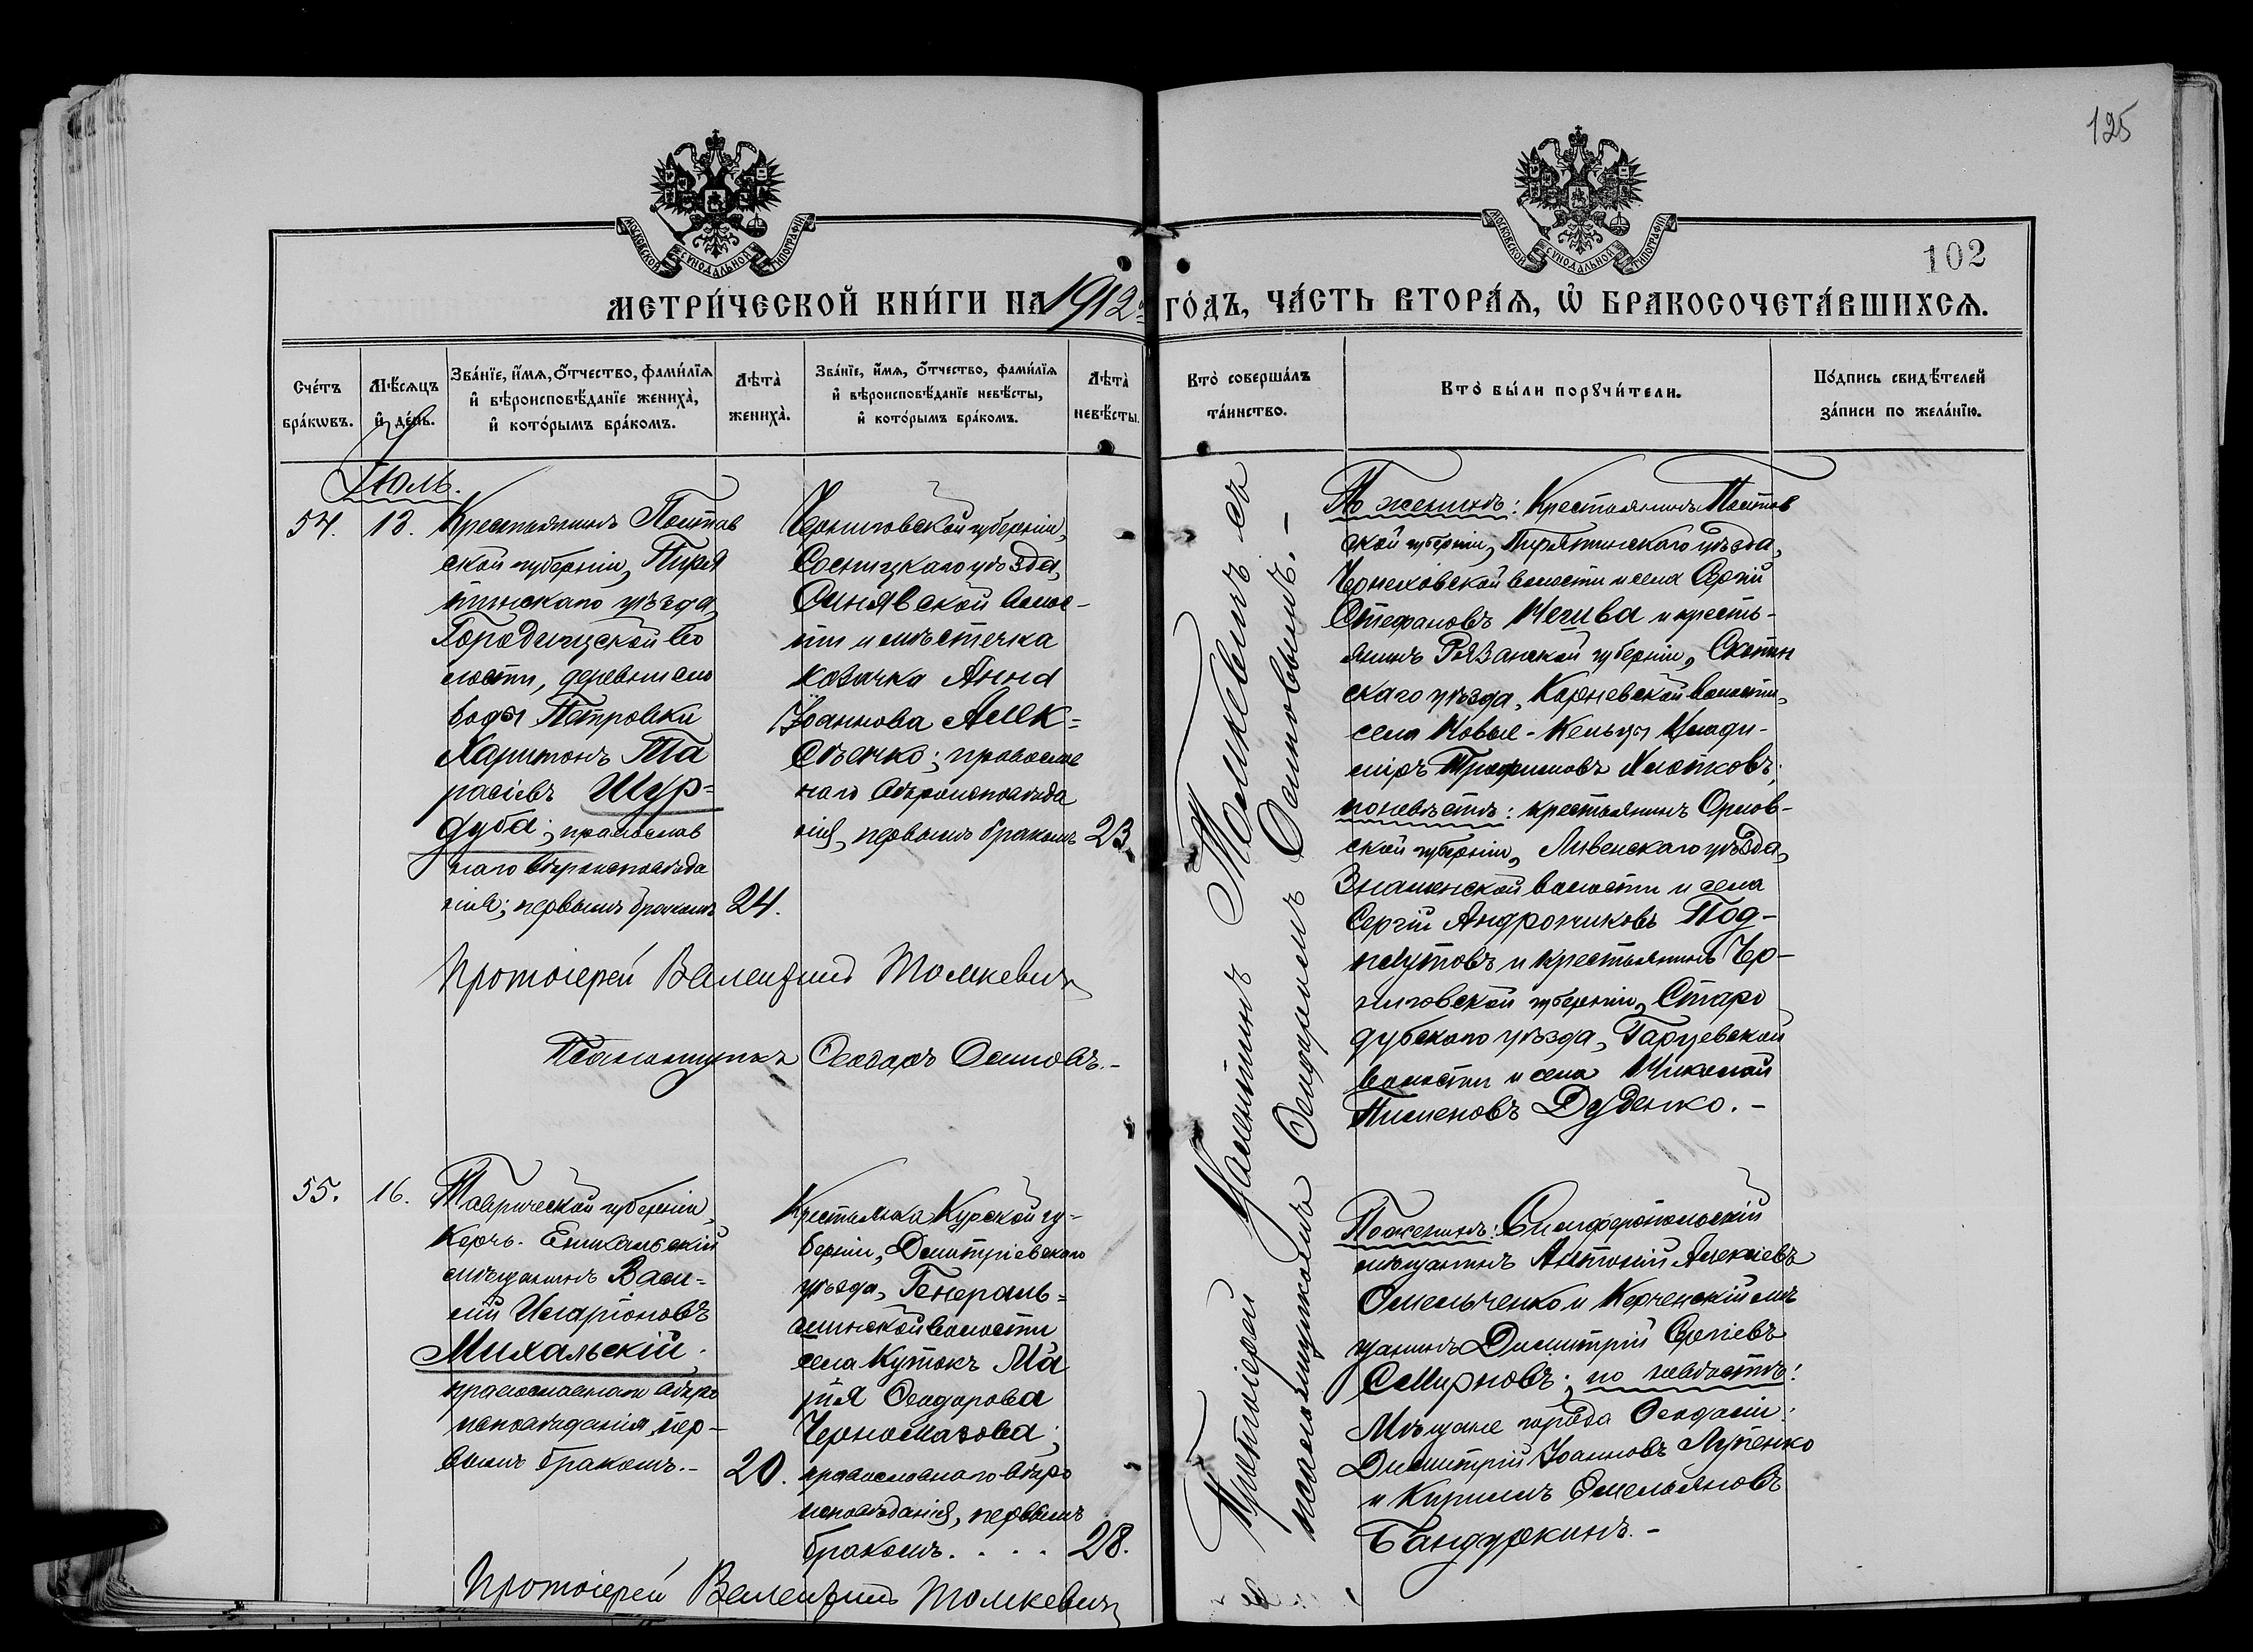 125
МОСКОВСКОЙ СѴНОДАЛЬНОЙ ТИПОГРАФІИ
МОСКОВСКОЙ СѴНОДАЛЬНОЙ ТИПОГРАФІИ
102
МЕТРИ́ЧЕСКОЙ КНИ́ГИ НА 1912 й ГО́ДЪ, ЧА́СТЬ ВТОРА́Я, Ѡ҆ БРАКОСОЧЕТА́ВШИХСЯ.
Сче́тъ
бра́кѡвъ.
Мѣ́сяцъ
и҆ де́нь.
Зва́нїе, и҆́мя, о҆́тчество, фами́лїя
и҆ вѣроисповѣ́данїе жениха̀,
и҆ кото́рымъ бра́комъ.
Лѣта̀
жениха̀.
Зва́нїе, и҆́мя, о҆́тчество, фами́лїя
и҆ вѣроисповѣ́данїе невѣ́сты,
и҆ кото́рымъ бра́комъ.
Лѣта̀
невѣ́сты.
Кто̀ соверша́лъ
та́инство.
Кто̀ бы́ли порꙋчи́тели.
По́дпись свидѣ́телей
за́писи по жела́нїю.
Іюль.
54.
13.
Крестьянинъ Полтав
ской губерніи, Пиря
тинскаго уѣзда,
Городищской во
лости, деревни сло
боды Петровки
Харитонъ Та
расіевъ Шур=
дуба; православ
наго вѣроисповѣда
нія; первымъ бракомъ
24.
Черниговской губерніи,
Сосницкаго уѣзда,
Синявской волос-
ти и мѣстечка
козачка Анна
Іоаннова Алек=
сѣенко; православ
наго вѣроисповѣда
нія, первымъ бракомъ
23.
Протоіерей Валентинъ Томкевичъ
Псаломщикъ Ѳеодоръ Осиповъ.-
Протоіерей Валентинъ Томкевичъ съ
псаломщикомъ Ѳеодоромъ Осиповымъ.-
По женихѣ: Крестьянинъ Полтав
ской губерніи, Пирятинскаго уѣзда,
волости и села Сергій
Стефановъ и кресть-
янинъ Рязанской губерніи, Скопин
скаго уѣзда, Корневской волости,
села Новые-Кельцы Влади-
міръ Трофимовъ
по невѣстѣ: крестьянинъ Орлов-
ской губерніи, Ливенскаго уѣзда,
Знаменской волости и села
Сергій Андрониковъ Под-
и крестьянинъ Чер-
ниговской губерніи, Старо
дубскаго уѣзда, Гарцевской
волости и села Николай
Пименовъ Дуденко.-
55.
16.
Таврической губерніи,
Керчь-Еникальскій
мѣщанинъ Васи=
лій Иларіоновъ
Михальскій;
православнаго вѣро
исповѣданія, пер-
вымъ бракомъ.-
20.
Крестьянка Курской гу-
берніи, Димитріевскаго
уѣзда, Генераль=
шинской волости
села Кутокъ Ма
рія Ѳеодорова
Черномазова;
православнаго вѣро
исповѣданія, первымъ
бракомъ. . . .
28.
По женихѣ: Симферопольскій
мѣщанинъ Антоній Алексіевъ
Омельченко и Керченскій мѣ
щанинъ Димитрій Сергіевъ
Смирновъ; по невѣстѣ:
Мѣщане города Ѳеодосіи:
Димитрій Іоанновъ Луценко
и Кириллъ Омельяновъ
Бандуркинъ.-
Протоіерей Валентинъ Томкевичъ